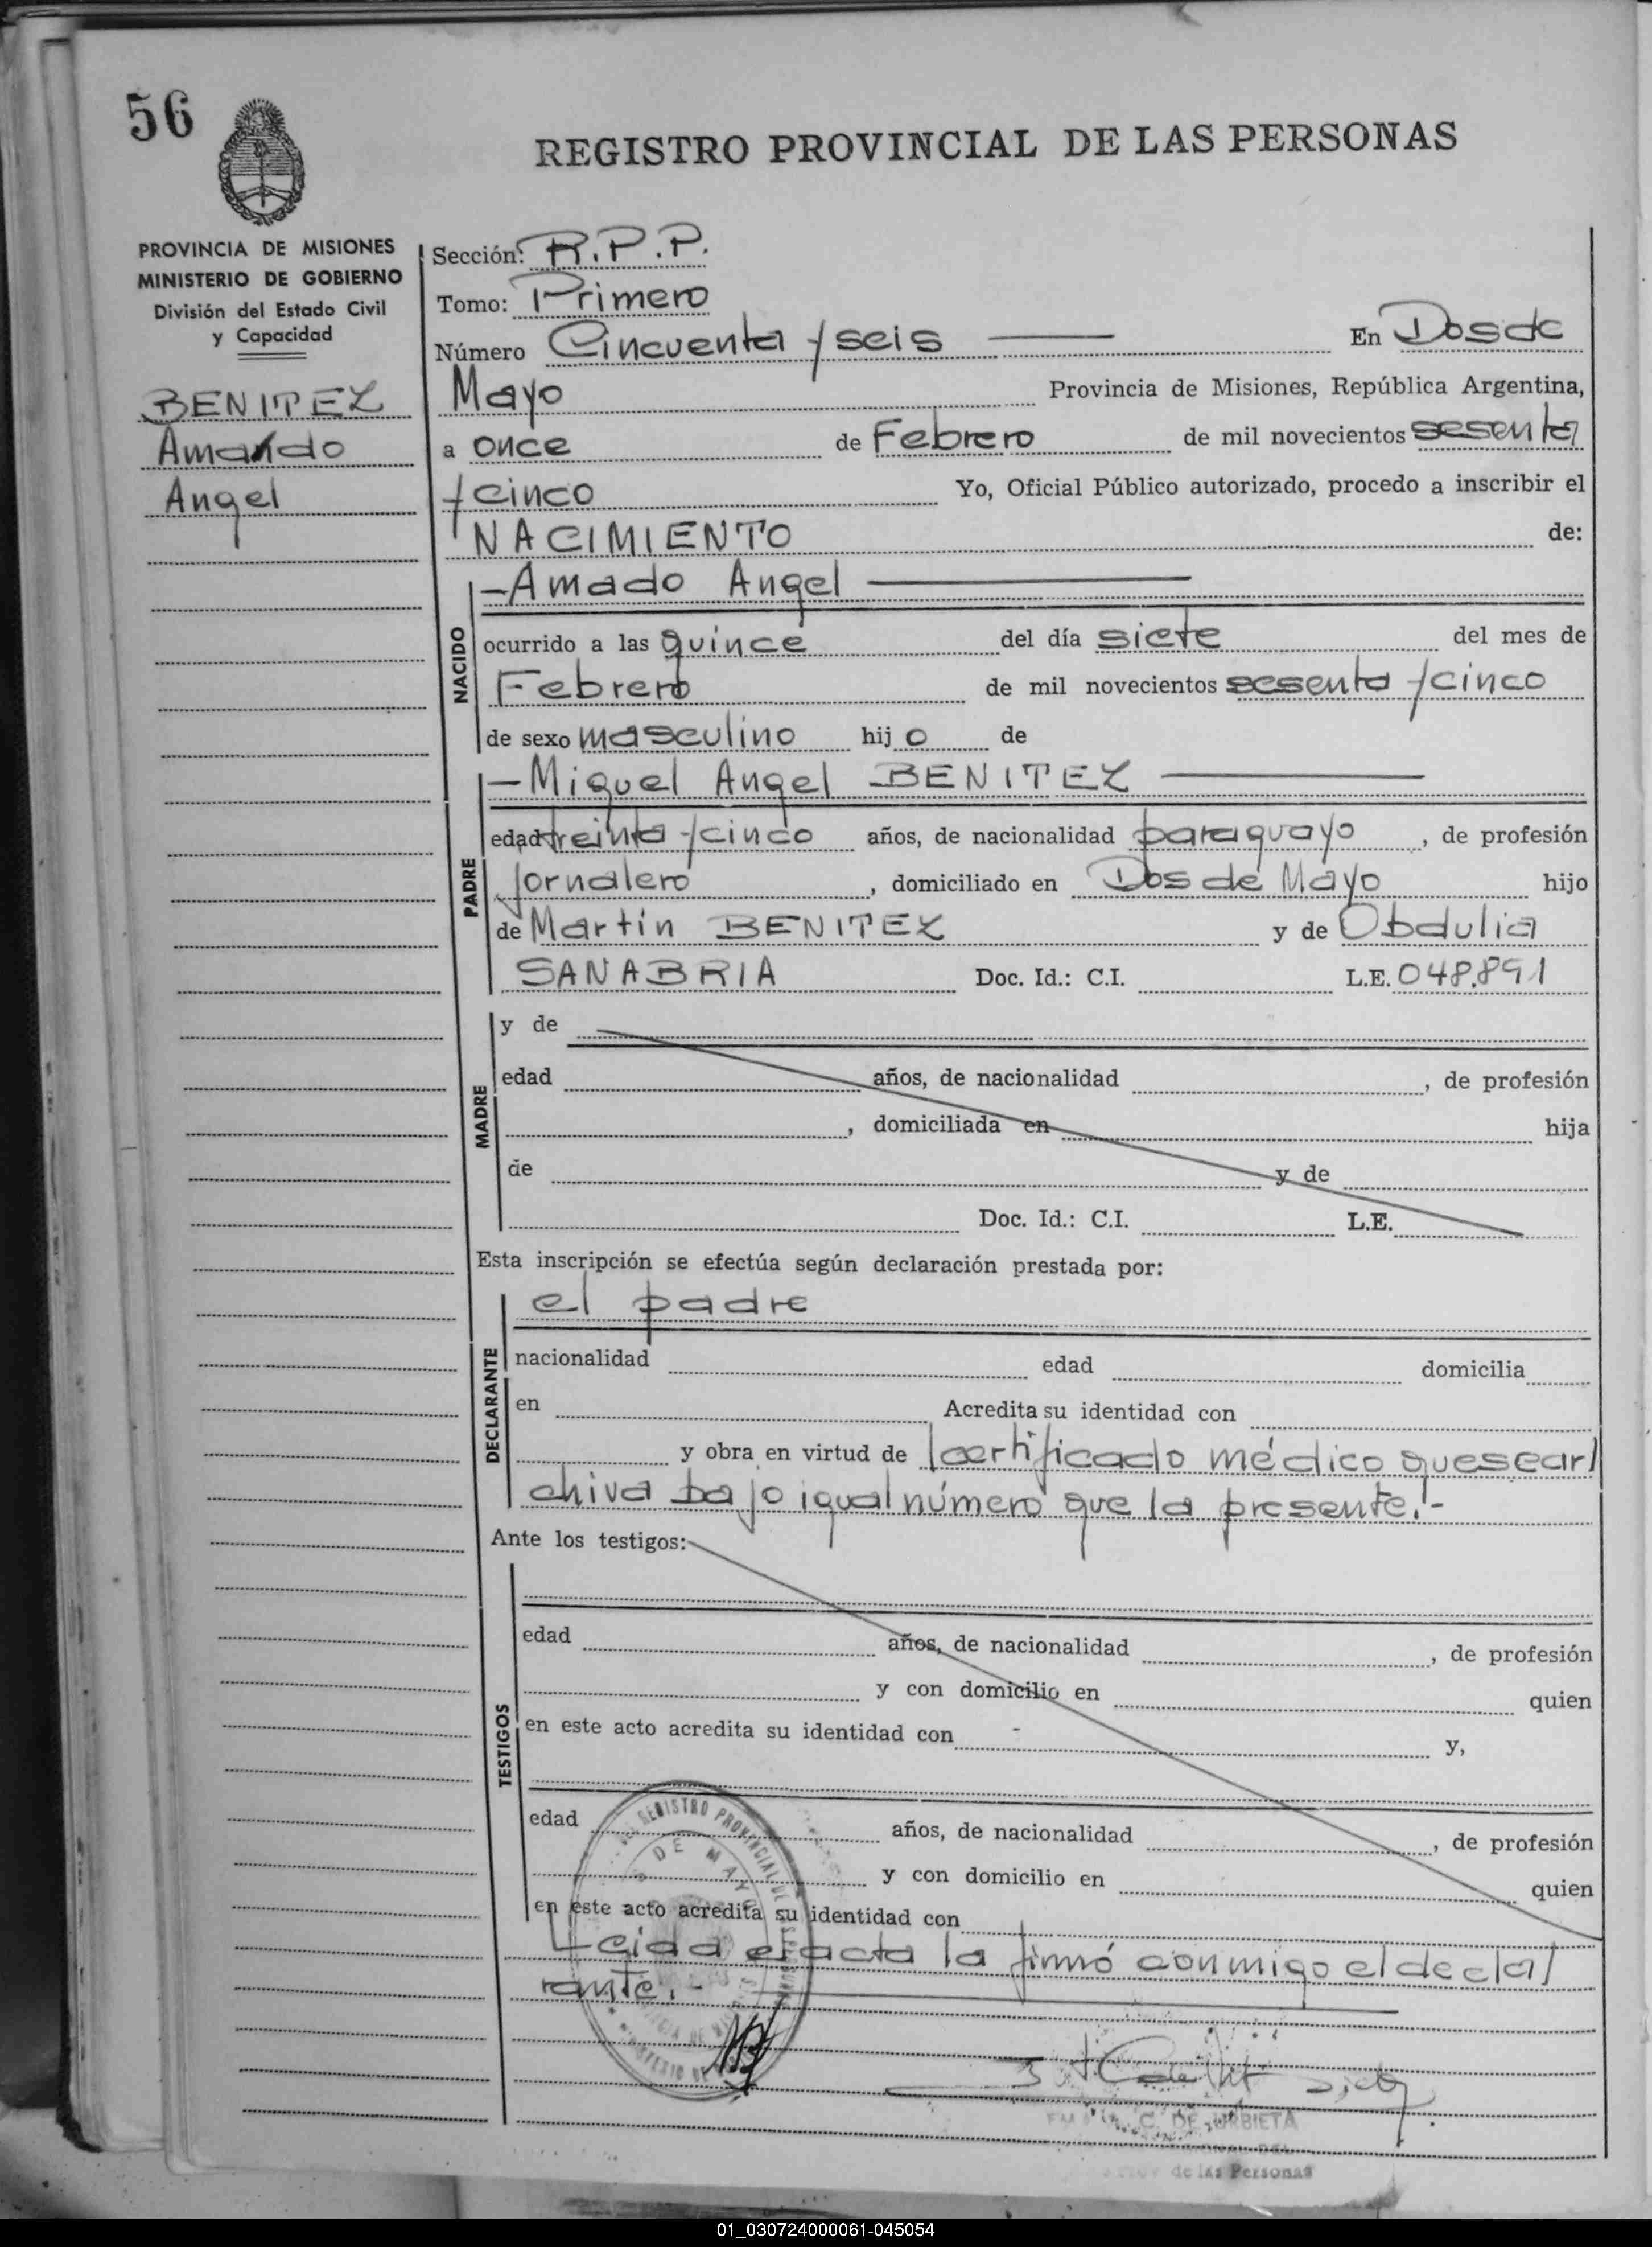 56
REGISTRO PROVINCIAL DE LAS PERSONAS
PROVINCIA DE MISIONES
MINISTERIO DE GOBIERNO
División del Estado Civil
y Capacidad
BENITEZ
Amando
Angel
Sección: R.P.P.
Tomo: Primero
Número Cincuenta y seis En Dos de
Mayo Provincia de Misiones, República Argentina,
a once de Febrero de mil novecientos sesenta
y cinco Yo, Oficial Público autorizado, procedo a inscribir el
NACIMIENTO de:
NACIDO
-Amado Angel
ocurrido a las quince del día siete del mes de
Febrero de mil novecientos sesenta y cinco
de sexo masculino hijo de
PADRE
-Miguel Angel BENITEZ
edad treinta y cinco años, de nacionalidad paraguayo, de profesión
jornalero, domiciliado en Dos de Mayo hijo
de Martín BENITEZ y de Obdulia
SANABRIA Doc. Id.: C.I. L.E. 048.891
MADRE
y de
edad años, de nacionalidad , de profesión
, domiciliada en hija
de y de
Doc. Id.: C.I. L.E.
Esta inscripción se efectúa según declaración prestada por:
DECLARANTE
el padre
nacionalidad edad domicilia
en Acredita su identidad con
y obra en virtud de certificado médico que se ar/
chiva bajo igual número que la presente.-
Ante los testigos:
TESTIGOS
edad años, de nacionalidad , de profesión
y con domicilio en quien
en este acto acredita su identidad con y,
edad años, de nacionalidad , de profesión
y con domicilio en quien
en este acto acredita su identidad con
Leida exacta la firmó conmigo el decla/
rante.-
REGISTRO PROVINCIAL DE
DE MAYO
C. DE URBIETA
de las Personas
01_030724000061-045054